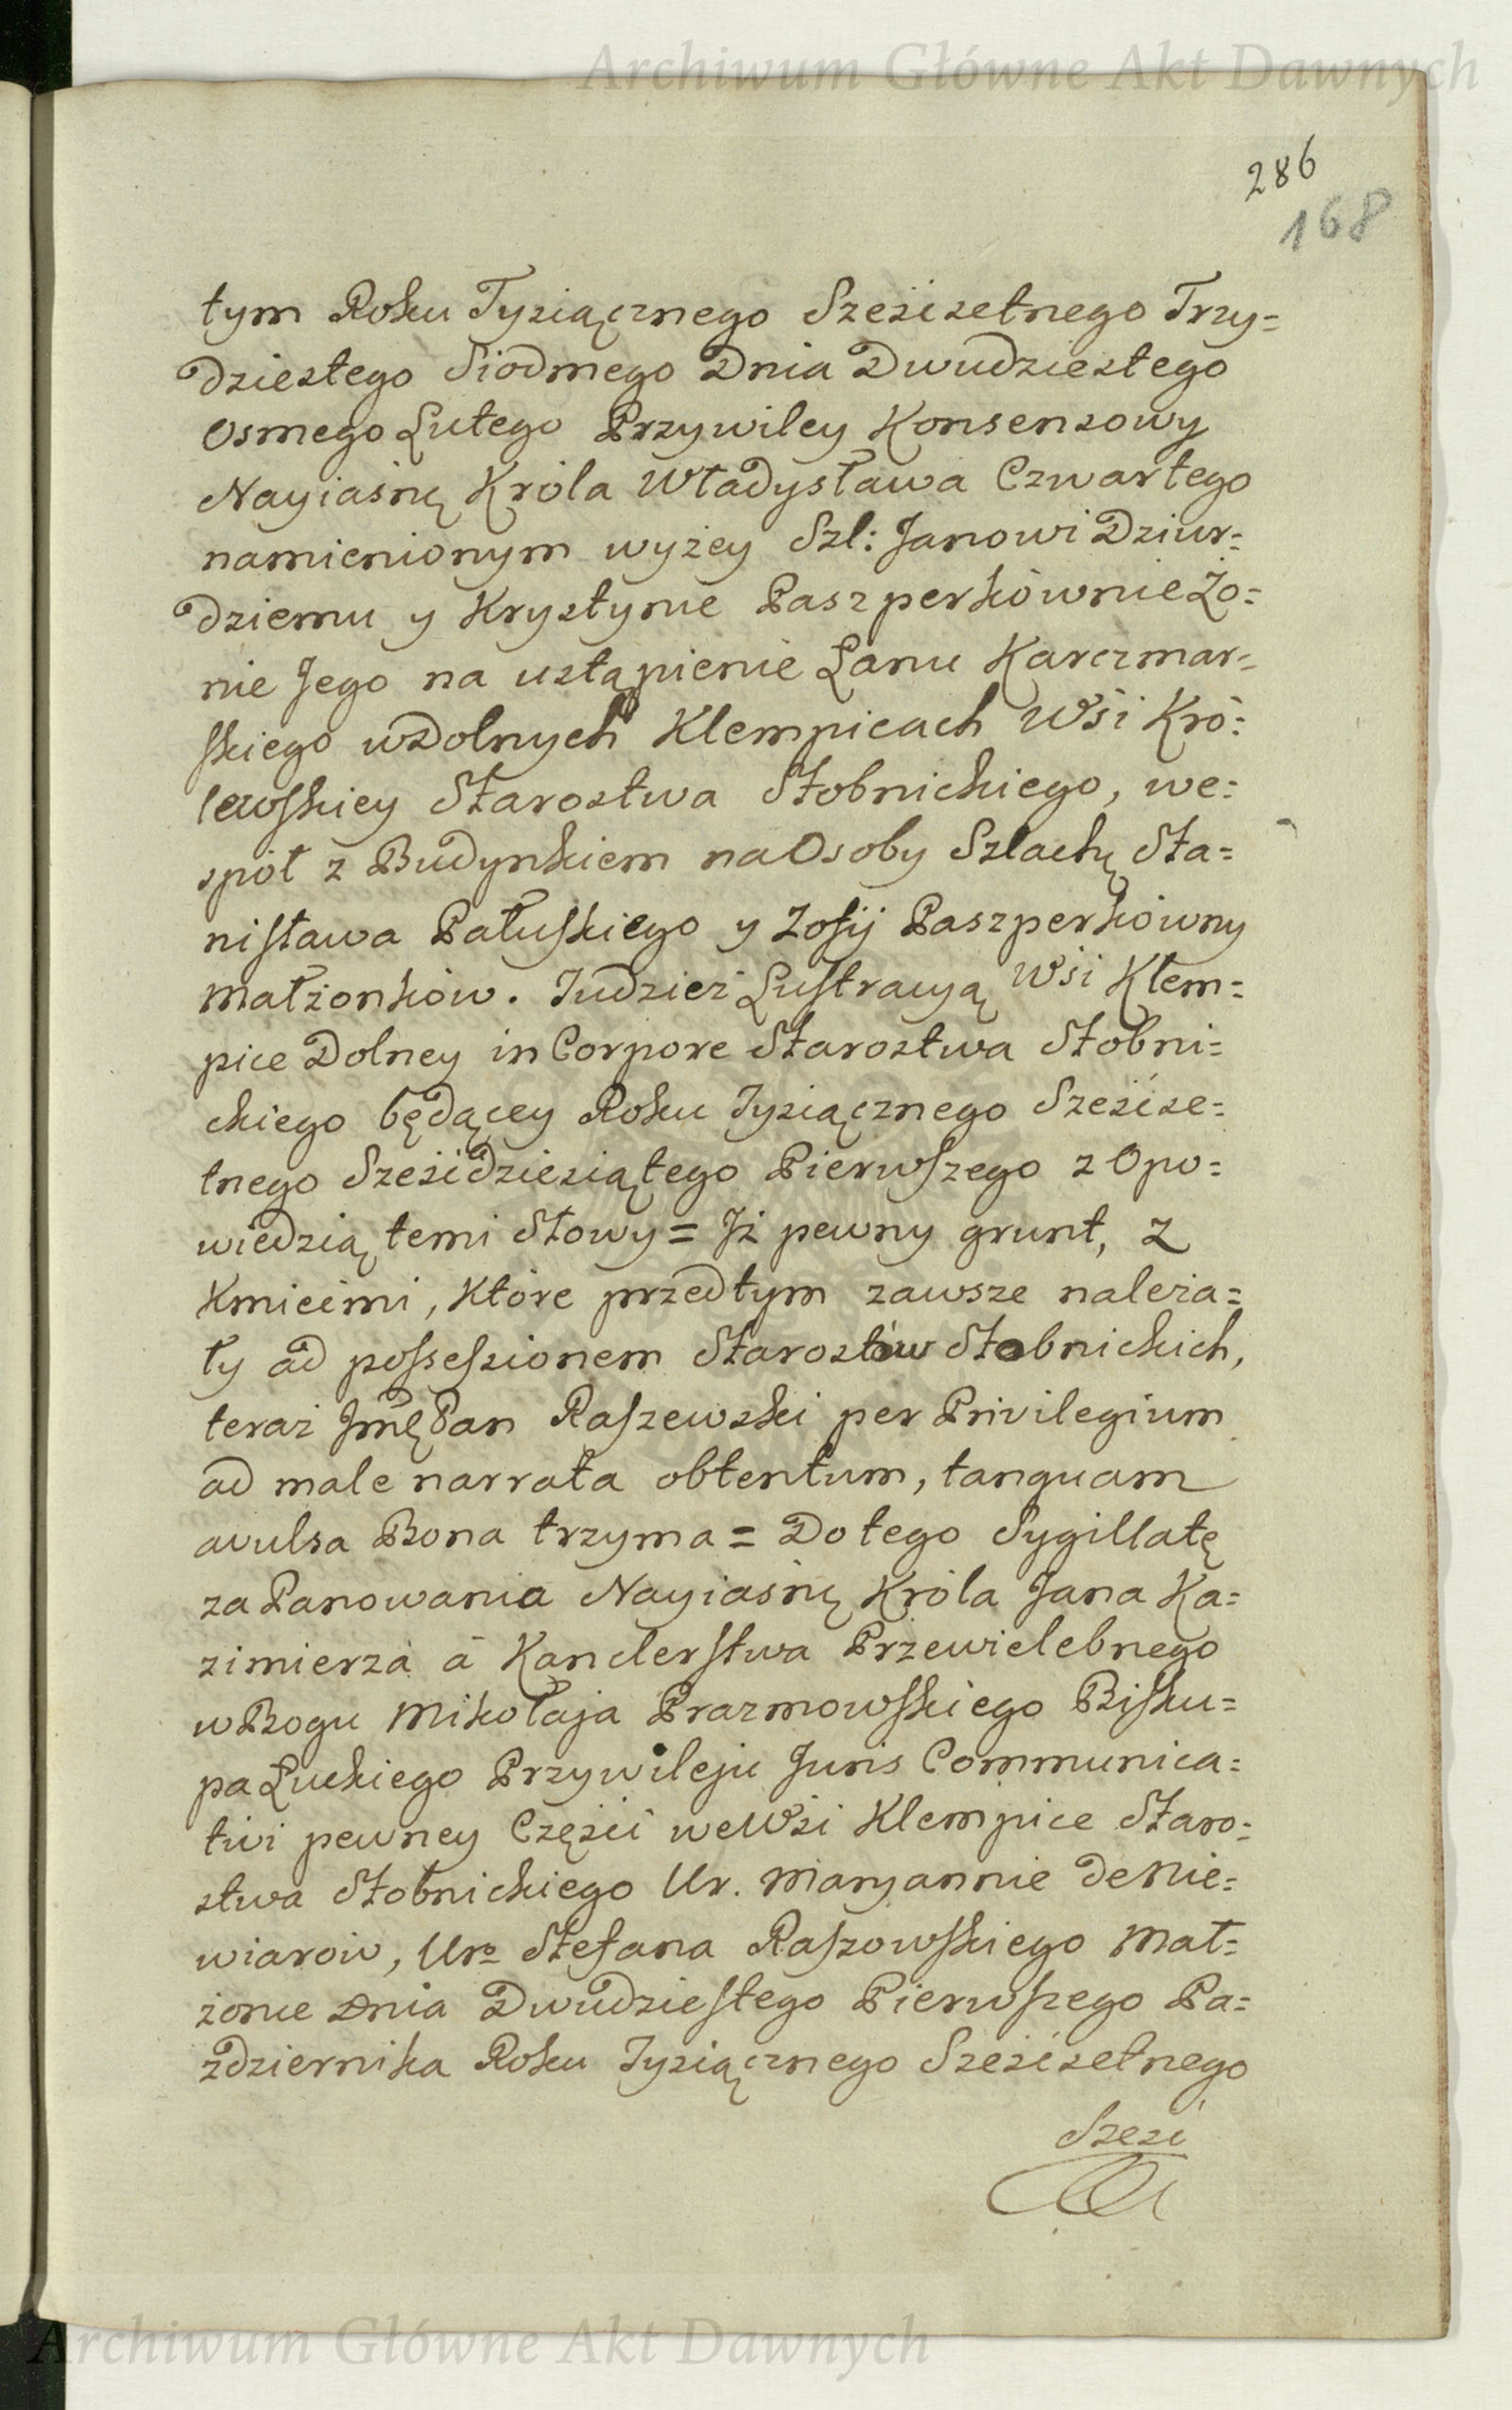 Archiwum Główne Akt Dawnych
286
168
tym Roku Tysiącznego Sześćsetnego Trzy=
dziestego Siodmego Dnia Dwudziestego
Osmego Lutego Przywiley Konsensowy
Nayiaśnę Króla Władysława Czwartego
namienionym wyżey Szl: Janowi Dziur=
dziemu y Krystynie Paszperkównie Żo=
nie Jego na ustąpienie Łanu Karczmar=
skiego w Dolnych Klempicach Wśi Kró=
lewskiey Starostwa Stobnickiego, we=
spół z Budynkiem na Osoby Szlachę Sta=
nisława Pałuskiego y Zofij Paszperkówny
Małżonków. Tudzież Lustracyą Wśi Klem=
pice Dolney in Corpore Starostwa Stobni=
ckiego będącey Roku Tysiącznego Sześćse=
tnego Sześćdziesiątego Pierwszego z Opo=
wiedzią temi Słowy = Iż pewny grunt, z
Kmiećmi, które przedtym zawsze należa=
ły ad possessionem Starostów Stobnickich,
teraz Jmę Pan Raszewski per Privilegium
ad male narrata obtentum, tanquam
avulsa Bona trzyma = Do tego Sygillatę
za Panowania Nayiaśnę Króla Jana Ka=
zimierza á Kanclerstwa Przewielebnego
w Bogu Mikołaja Prazmowskiego Bisku=
pa Łuckiego Przywileju Juris Communica=
tivi pewney Części we Wśi Klempice Staro=
stwa Stobnickiego Ur. Maryannie de Nie=
wiarow, Uro Stefana Raszowskiego Mał=
żonie Dnia Dwudziestego Pierwszego Pa=
zdziernika Roku Tysiącznego Sześćsetnego
Sześć
Archiwum Główne Akt Dawnych